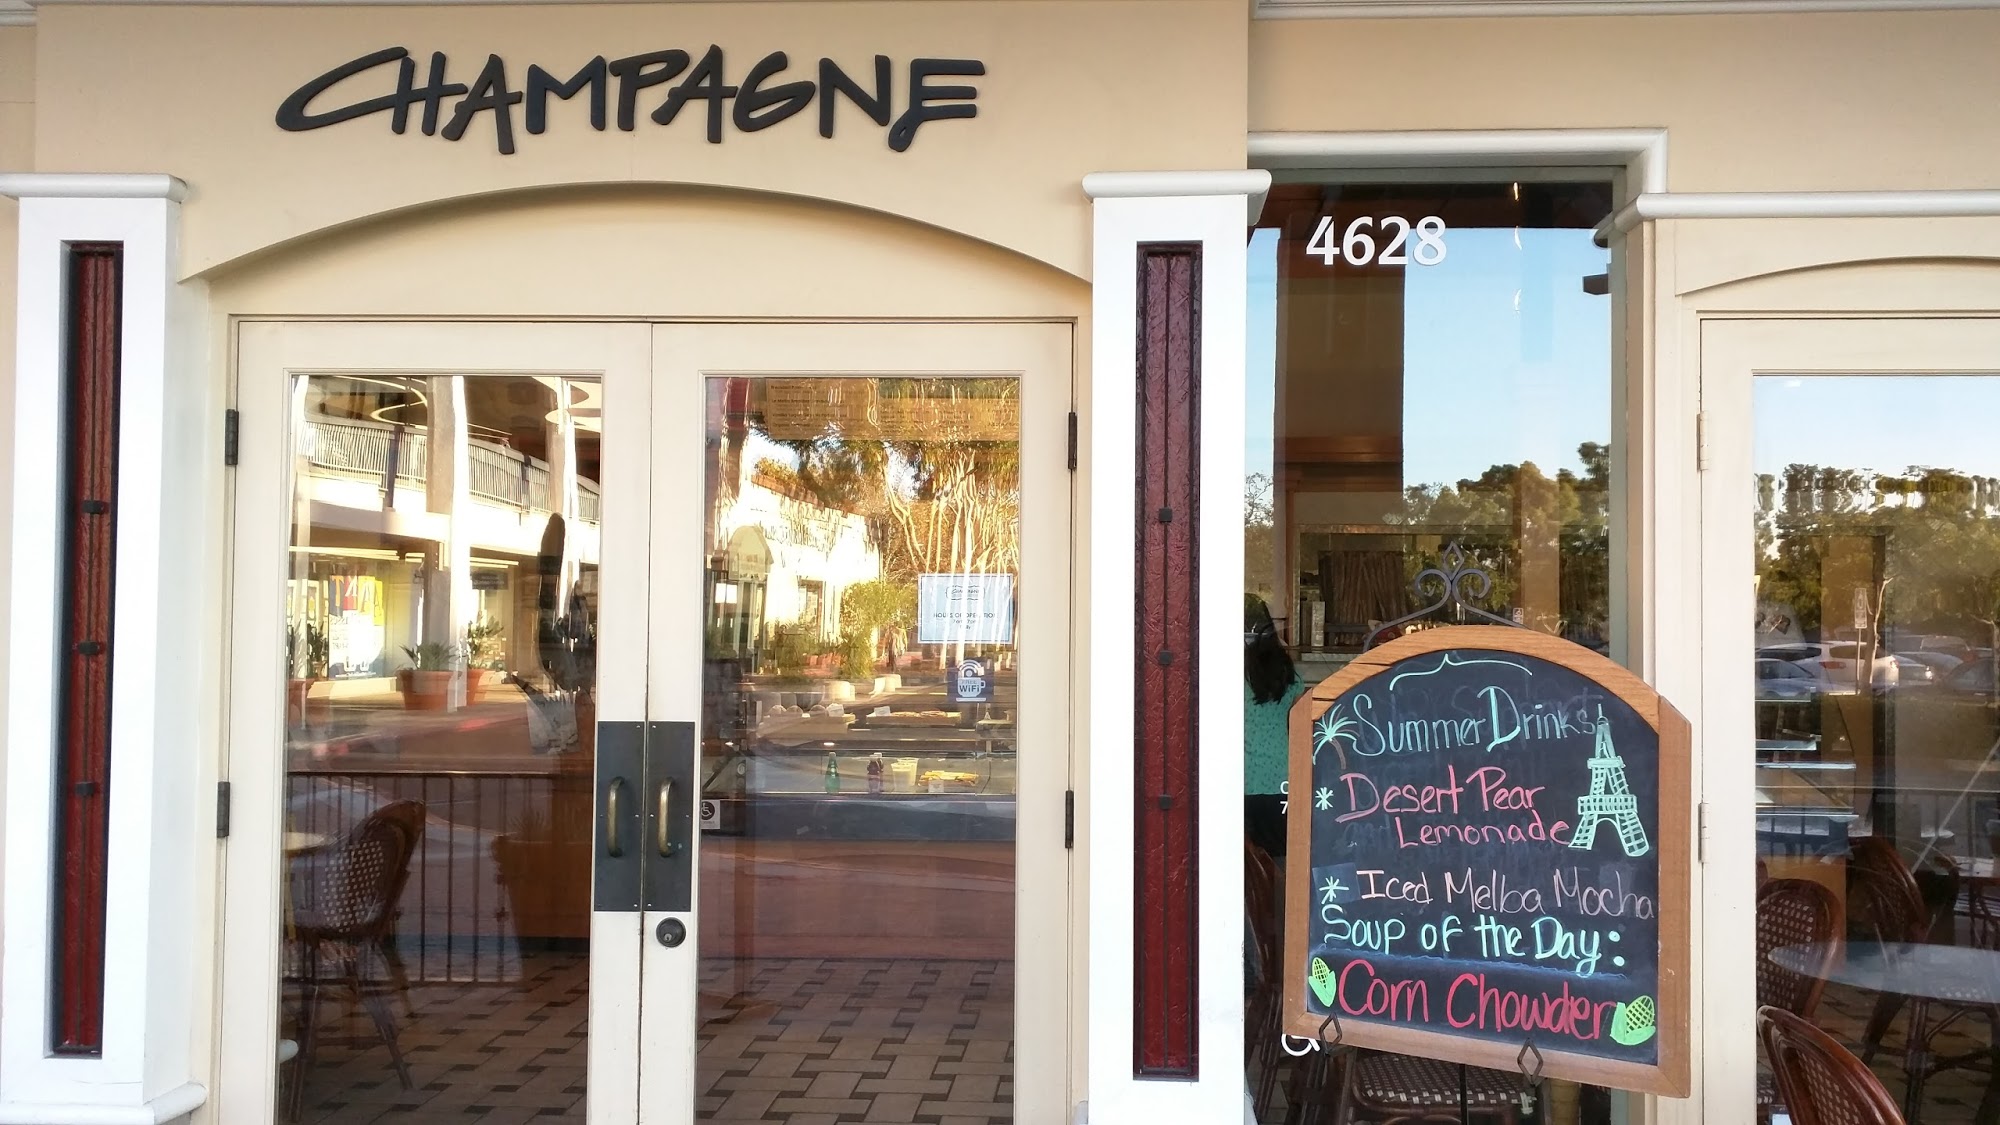 CHAMPAGNE
4628
HOURS OF OPERATION
FREE
WiFi
Summer Drinks
* Desert Pear
Lemonade
* Iced Melba Mocha
Soup of the Day:
Corn Chowder